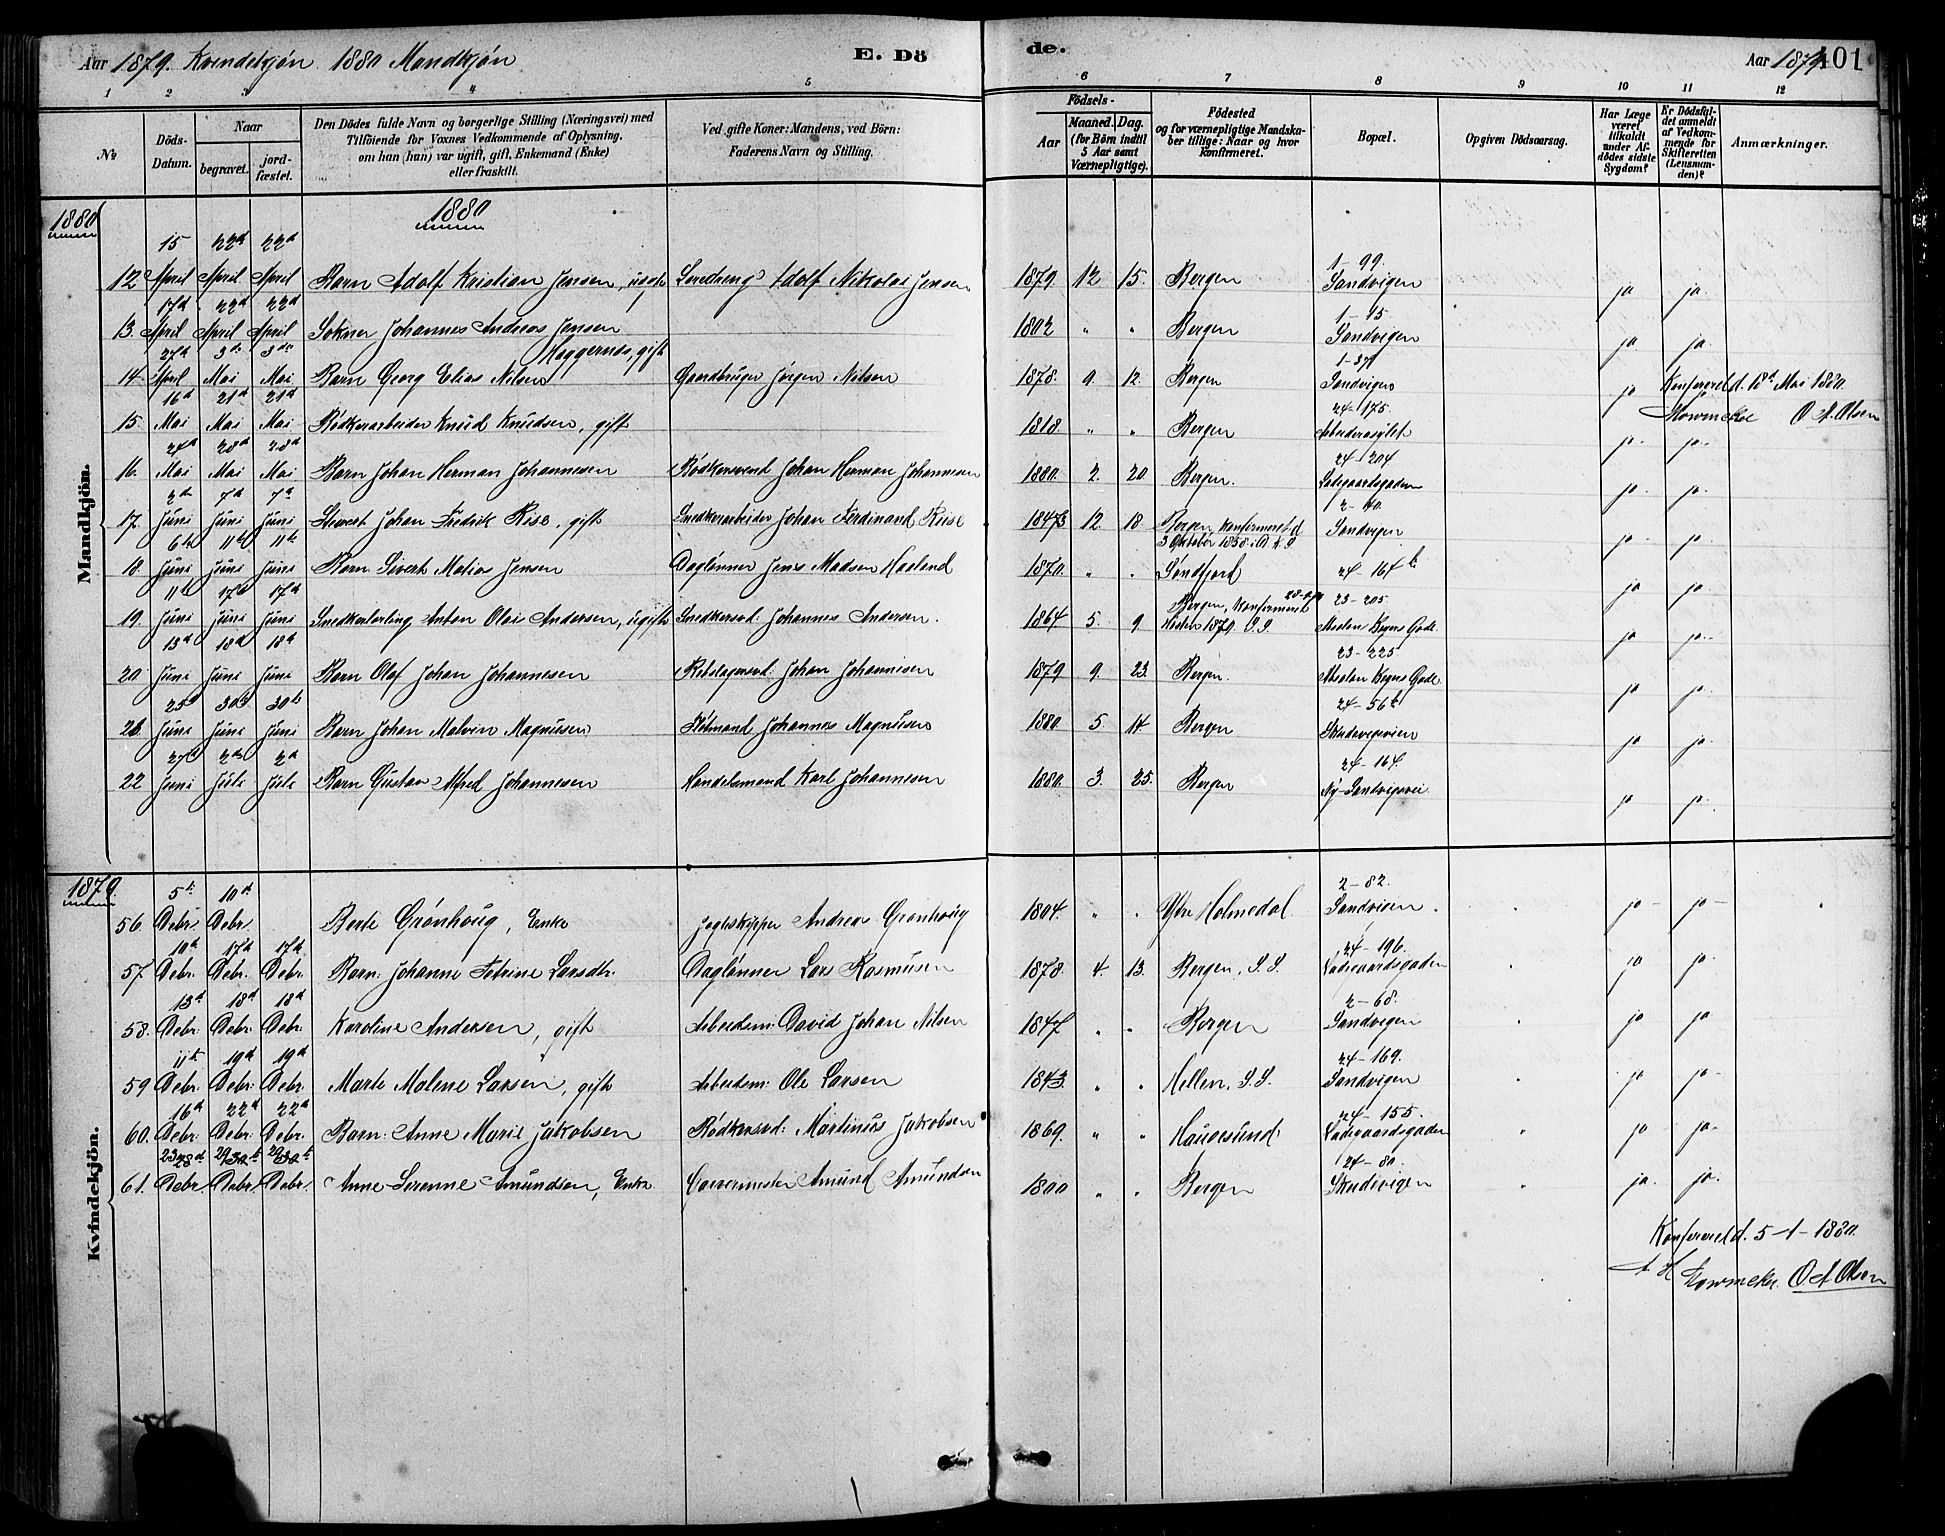 Aar 1879. Kvindekjøn 1880 Mandkjøn E. Dö de. Aar 1879 401
1 2 3 4 5 6 7 8 9 10 11 12
№ Döds-Datum. Naar begravet. jordfæstet. Den Dödes fulde Navn og borgerlige Stilling (Næringsvei) med Tilföiende for Voxnes Vedkommende af Oplysning. om han (hun) var ugift, gift, Enkemand (Enke) eller fraskilt. Ved gifte Koner: Mandens, ved Börn: Faderens Navn og Stilling. Födsels- Aar Maaned. Dag. (for Börn indtil 5 Aar samt Værnepligtige). Födested og for værnepligtige Mandskaber tillige: Naar og hvor Konfirmeret. Bopæl. Opgiven Dödsaarsag. Har Læge været tilkaldt under Afdödes sidste Sygdom? Er Dödsfaldet anmeldt af Vedkommende for Skifteretten (Lensmanden)? Anmærkninger.
1880 1880
Mandkjön.
12 15 April 22d April 22d April Barn Adolf Kristian Jensen, Adolf Nikolai Jensen 1879 12 15. Bergen 1-99. Sandvigen ja ja.
13. 17d April 22d April 22d April Johannes Andreas Jensen gift 1802 " " Bergen 1-15. Sandvigen ja ja.
14. 27d April 3de Mai 3de Mai Barn Georg Elias Nilsen Gaardbruger Jørgen Nilsen 1878. 9. 12. Bergen Sandvigen ja Konfereret d. 18d Mai 1880. O A Olsen
15. 16d Mai 21d Mai 21d Mai Bødkerarbeider Knud Knudsen, gift 1818. " " Bergen 24-175. Arbeiderasylet ja. ja.
16. 24d Mai 28d Mai 28d Mai Barn Johan Herman Johannesen Bødkersvend Johan Herman Johannesen 1880. 2. 20. Bergen. 24-204 Ladegaardsgaden ja. ja.
17. 2d Juni 7d Juni 7d Juni Johan Fredrik Rise, gift Snedkerarbeider Johan Ferdinand Riise 1847 12 18 Bergen konfirmeret d 3 Oktober 1858 Sandvigen ja. ja.
18 6te Juni 11te Juni 11te Juni Barn Sivert Matias Jensen Daglønner Jens Madsen Haaland 1870. " " Søndfjord 24-164 b ja ja.
19. 11te Juni 17d Juni 17d Juni Snedkerlærling Anton Olai Andersen, ugift Snedkersvd. Johannes Andersen. 1864 5. 9 Bergen, Konfirmeret Høsten 1879. 23-205. ja ja.
20. 13d Juni 18d Juni 18d Juni Barn Olaf Johan Johannesen Rebslagersvd. Johan Johannesen 1879 9. 23. Bergen. 23-225 ja ja.
21. 25d Juni 30d Juni 30te Juni Barn Johan Malvin Magnusen Johannes Magnusen 1880 5. 14. Bergen 24-56 b Skudevigsveien ja ja.
22 27d Juni 2den Juli 2d Juli Barn Gustav Alfred Johannesen Handelsmand Karl Johannesen 1880. 3. 25. Bergen 24-164. Ny-Sandvigsvei. ja ja.
1879.
Kvindekjön.
56. 5te Debr. 10d Debr. Berte Grønhoug, Enke Jagteskipper Andreas Grønhoug 1804. " " Ytre Holmedal. 2-82. Sandvigen ja ja
57. 10d Debr. 17d Debr. 17d Debr. Barn: Johanne Petrine Larsdtr. Daglønner Lars Rasmusen 1878. 4. 13. Bergen, S.S. 24-196. Ladegaardsgaden ja ja.
58. 13d Debr. 18d Debr. 18d Debr. Karoline Andersen, gift Arbeidsm. David Johan Nilsen 1847. " " Bergen 2-68. Sandvigen ja ja
59 11te Debr. 19d Debr. 19d Debr. Marte Malene Larsen, gift Arbeidsm: Ole Larsen 1843. " " Hellen, S.S. 24-169. Sandvigen ja ja.
60. 16d Debr. 22d Debr. 22d Debr. Barn: Anne Marie Jakobsen Bødkersvd: Martinus Jakobsen 1869. " " Haugesund 24-155. Ladegaardsgaden ja ja.
61. 23 28d Debr. 29 30te Debr. 29 30te Debr. Anne Serenne Amundsen, Enke Amund Amundsen 1800 " " Bergen 24-80. Skudevigen ja. ja.
Konfereret d. 5-1-1880.
O. A Olsen